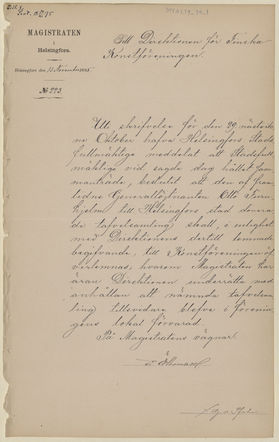 MAGISTRATEN
i
Helsingfors.
Helsingfors den 15 November 1895.
No 223.
Till Direktionen för Finska
Konstföreningen.
Uti skrifvelse för den 29 nästvik-
ne Oktober hafva Helsingfors Stads
fullmäktige meddelat att Stadsfull
mäktige vid sagde dag hållet sam-
manträde, beslutit att den af fra
lidne Generallöjtnanten Otto Furu
hjelm till Helsingfors stad donera
de tafvelsamling skall, i enlighet
med Direktionens dertill lemnade
begifvande, till Konstföreningen öf
verlemnas, hvarom Magistraten har
äran Direktionen underrätta med
anhållan att nämnda tafvelsam
ling tillsvidare blefve i förenin
gens lokal förvarad.
På Magistratens vägnar:
Öhman